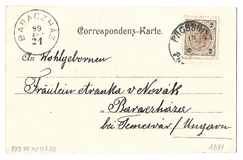 BARACZHÁZ
99
21
Correspondenz-Karte.
PROSSNITZ
An Wohlgebornen
Fräulein Aranka v Novák
Baraczháza
bei Temesvár / Ungarn
1899